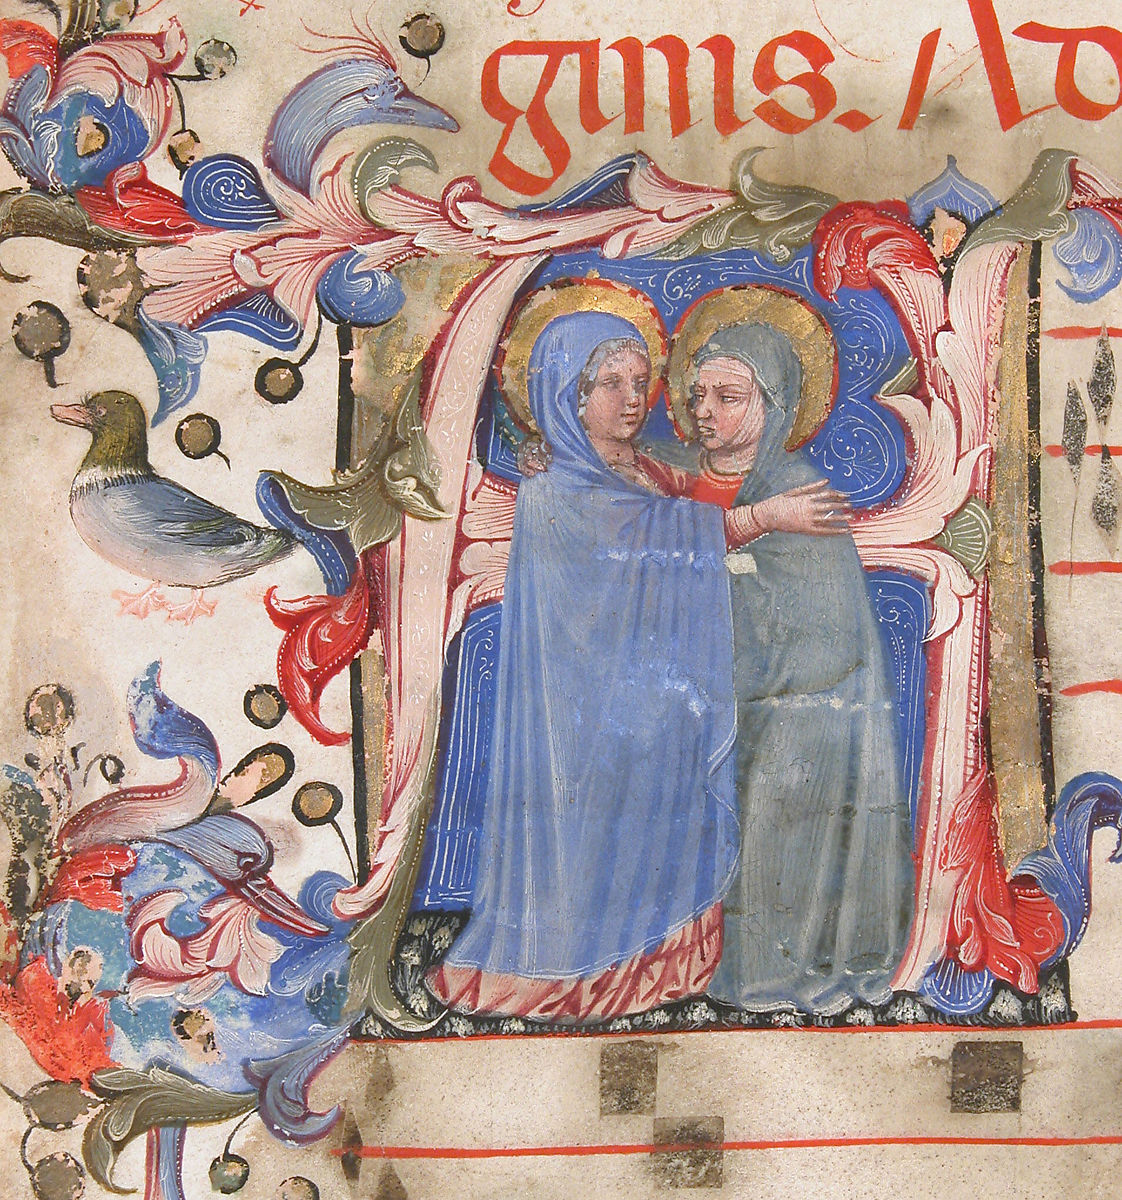 gıııs. / Ad